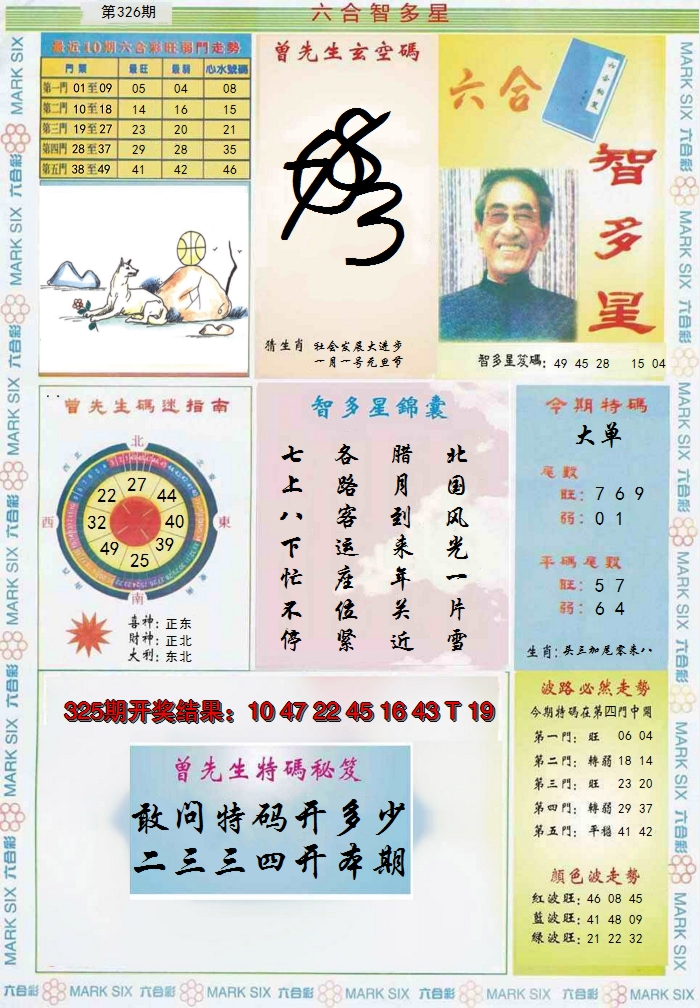 第326期
六合智多星
最近10期六合彩旺弱門走勢
門票 最旺 最弱 心水號碼
第一門 01至09 05 04 08
第二門 10至18 14 16 15
第三門 19至27 23 20 21
第四門 28至37 29 28 35
第五門 38至49 41 42 46
曾先生玄空碼
猜生肖 社会发展大进步
一月一号元旦节
六合
智多星
智多星笈碼: 49 45 28 15 04
曾先生碼迷指南
北
東
南
西
27
44
40
39
25
49
32
22
喜神: 正东
财神: 正北
大利: 东北
智多星錦囊
北国风光一片雪
腊月到来年关近
各路客运座位紧
七上八下忙不停
今期特碼
大单
尾數
旺: 7 6 9
弱: 0 1
平碼尾數
旺: 5 7
弱: 6 4
生肖: 头三加尾零来八
325期开奖结果: 10 47 22 45 16 43 T 19
曾先生特碼秘笈
敢问特码开多少
二三三四开本期
波路必然走勢
今期特碼在第四門中開
第一門: 旺 06 04
第二門: 轉弱 18 14
第三門: 旺 23 20
第四門: 轉弱 29 37
第五門: 平穩 41 42
顔色波走勢
紅波旺: 46 08 45
藍波旺: 41 48 09
綠波旺: 21 22 32
MARK SIX 六合彩